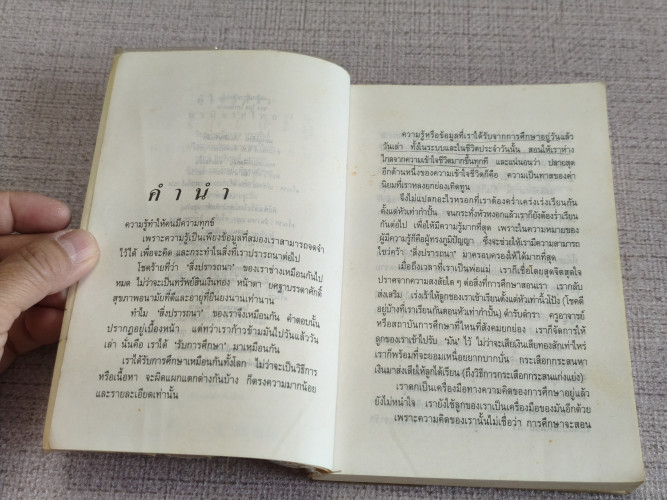 คำนำ
ความรู้ทำให้คนมีความทุกข์
เพราะความรู้เป็นเพียงข้อมูลที่สมองเราสามารถจดจำ
ไว้ได้ เพื่อจะคิด และกระทำในสิ่งที่เราปรารถนาต่อไป
โชคร้ายที่ว่า 'สิ่งปรารถนา' ของเราช่างเหมือนกันไป
หมด ไม่ว่าจะเป็นทรัพย์สินเงินทอง หน้าตา ยศฐาบรรดาศักดิ์
สุขภาพอนามัยที่ดีและอายุที่ยืนยงนานเท่านาน
ทำไม 'สิ่งปรารถนา' ของเราจึงเหมือนกัน คำตอบนั้น
ปรากฏอยู่เบื้องหน้า แต่ทว่าเราก้าวข้ามมันไปวันแล้ววัน
เล่า นั่นคือ เราได้ 'รับการศึกษา' มาเหมือนกัน
เราได้รับการศึกษาเหมือนกันทั้งโลก ไม่ว่าจะเป็นวิธีการ
หรือเนื้อหา จะผิดแผกแตกต่างกันบ้าง ก็ตรงความมากน้อย
และรายละเอียดเท่านั้น
ความรู้หรือข้อมูลที่เราได้รับจากการศึกษาอยู่วันแล้ว
วันเล่า ทั้งในระบบและในชีวิตประจำวันนั้น สอนให้เราห่าง
ไกลจากความเข้าใจชีวิตมากขึ้นทุกที และแน่นอนว่า ปลายสุด
อีกด้านหนึ่งของความเข้าใจชีวิตก็คือ ความเป็นทาสของค่า
นิยมที่เราหลงยกย่องเทิดทูน
จึงไม่แปลกอะไรหรอกที่เราต้องคร่ำเคร่งเร่งเรียนกัน
ตั้งแต่หัวเท่ากำปั้น จนกระทั่งหัวหงอกแล้วเราก็ยังต้องร่ำเรียน
กันต่อไป เพื่อให้มีความรู้มากที่สุด เพราะในความหมายของ
ผู้มีความรู้ก็คือผู้ทรงภูมิปัญญา ซึ่งจะช่วยให้เรามีความสามารถ
ไขว่คว้า 'สิ่งปรารถนา' มาครอบครองให้ได้มากที่สุด
เมื่อถึงเวลาที่เราเป็นพ่อแม่ เราก็เชื่อโดยสุดจิตสุดใจ
ปราศจากความสงสัยใด ๆ ต่อสิ่งที่การศึกษาสอนเรา เรากลับ
ส่งเสริม เร่งเร้าให้ลูกของเราเข้าเรียนตั้งแต่หัวเท่านิ้วโป้ง (โชคดี
อยู่บ้างที่เราเริ่มเรียนกันตอนหัวเท่ากำปั้น) ดำรับดำรา ครูอาจารย์
หรือสถาบันการศึกษาที่ไหนที่สังคมยกย่อง เราก็จัดการให้
ลูกของเราเข้าไปรับ 'มัน' ไว้ ไม่ว่าจะเสียเงินเสียทองสักเท่าไหร่
เราก็พร้อมที่จะยอมเหนื่อยยากบากบั่น กระเสือกกระสนหา
เงินมาส่งเสียให้ลูกได้เรียน (ถึงวิธีการกระเสือกกระสนแก่งแย่ง)
เราตกเป็นเครื่องมือทางความคิดของการศึกษาอยู่แล้ว
ยังไม่หนำใจ เรายังใช้ลูกของเราเป็นเครื่องมือของมันอีกด้วย
เพราะความคิดของเรานั้นไม่เชื่อว่า การศึกษาจะสอน